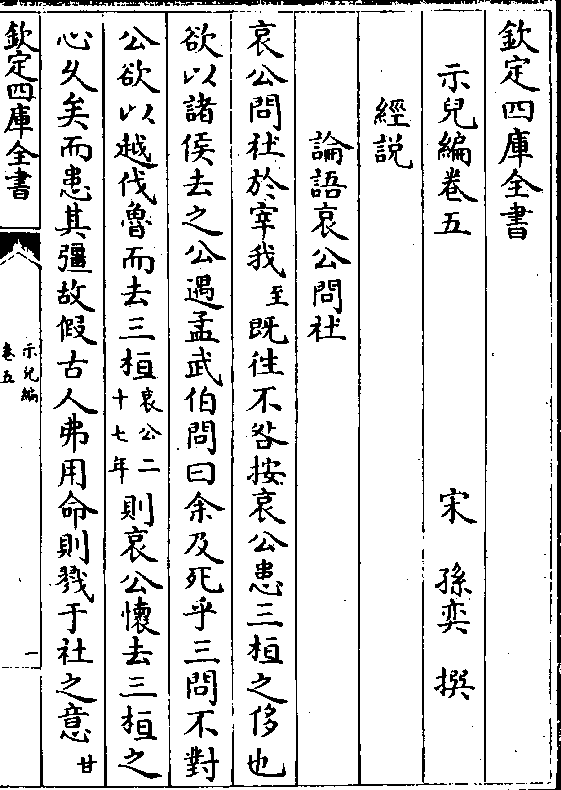 欽定四庫全書
示兒編卷五
宋 孫奕 撰
經說
論語哀公問社
哀公問社於宰我至既徃不咎按哀公患三桓之侈也
欲以諸侯去之公遇孟武伯問曰余及死乎三問不對
公欲以越伐魯而去三桓哀公二十七年則哀公懷去三桓之
心久矣而患其彊故假古人弗用命則戮于社之意甘
欽定四庫全書
示兒編
卷五
一